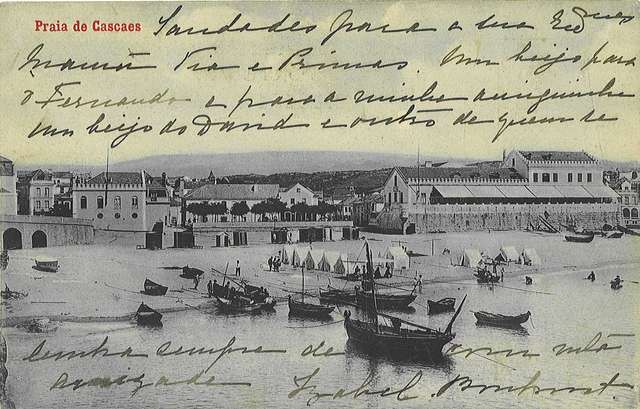 Praia de Cascaes
Saudades para a tua
Mamã Tia e Primas. Um beijo para
o Fernando e para a minha amiguinha
um beijo do David e outro de quem te
lembra sempre de com
amizade Isabel